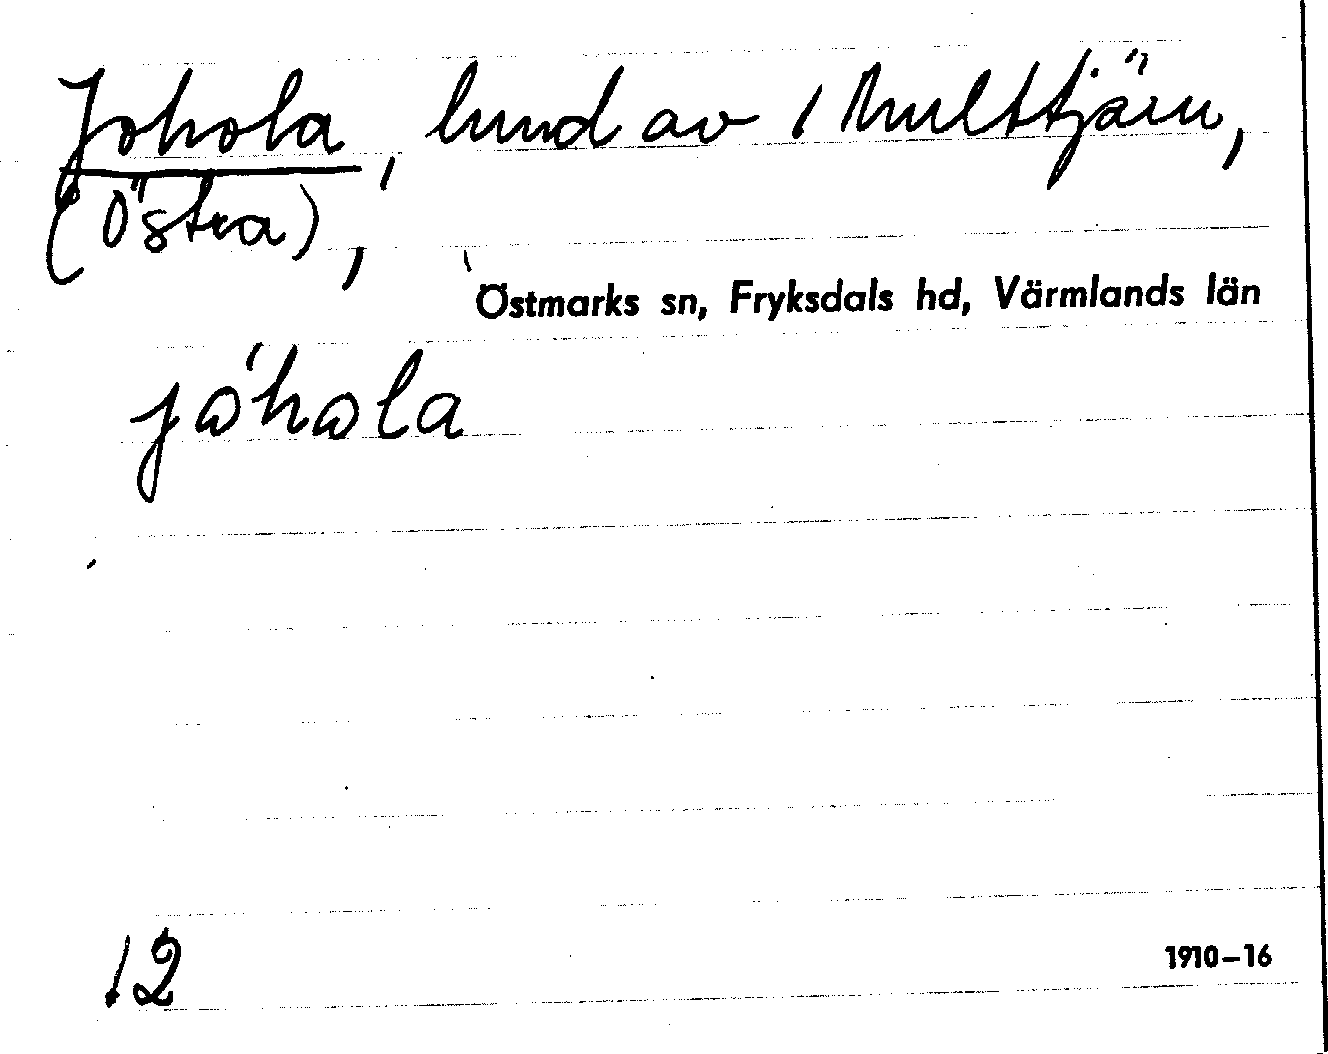 Johola, lund av 1 Multtjärn,
(Östra),
Östmarks sn, Fryksdals hd, Värmlands län
jóhola
12
1910–16